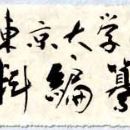 東京大学
料編纂